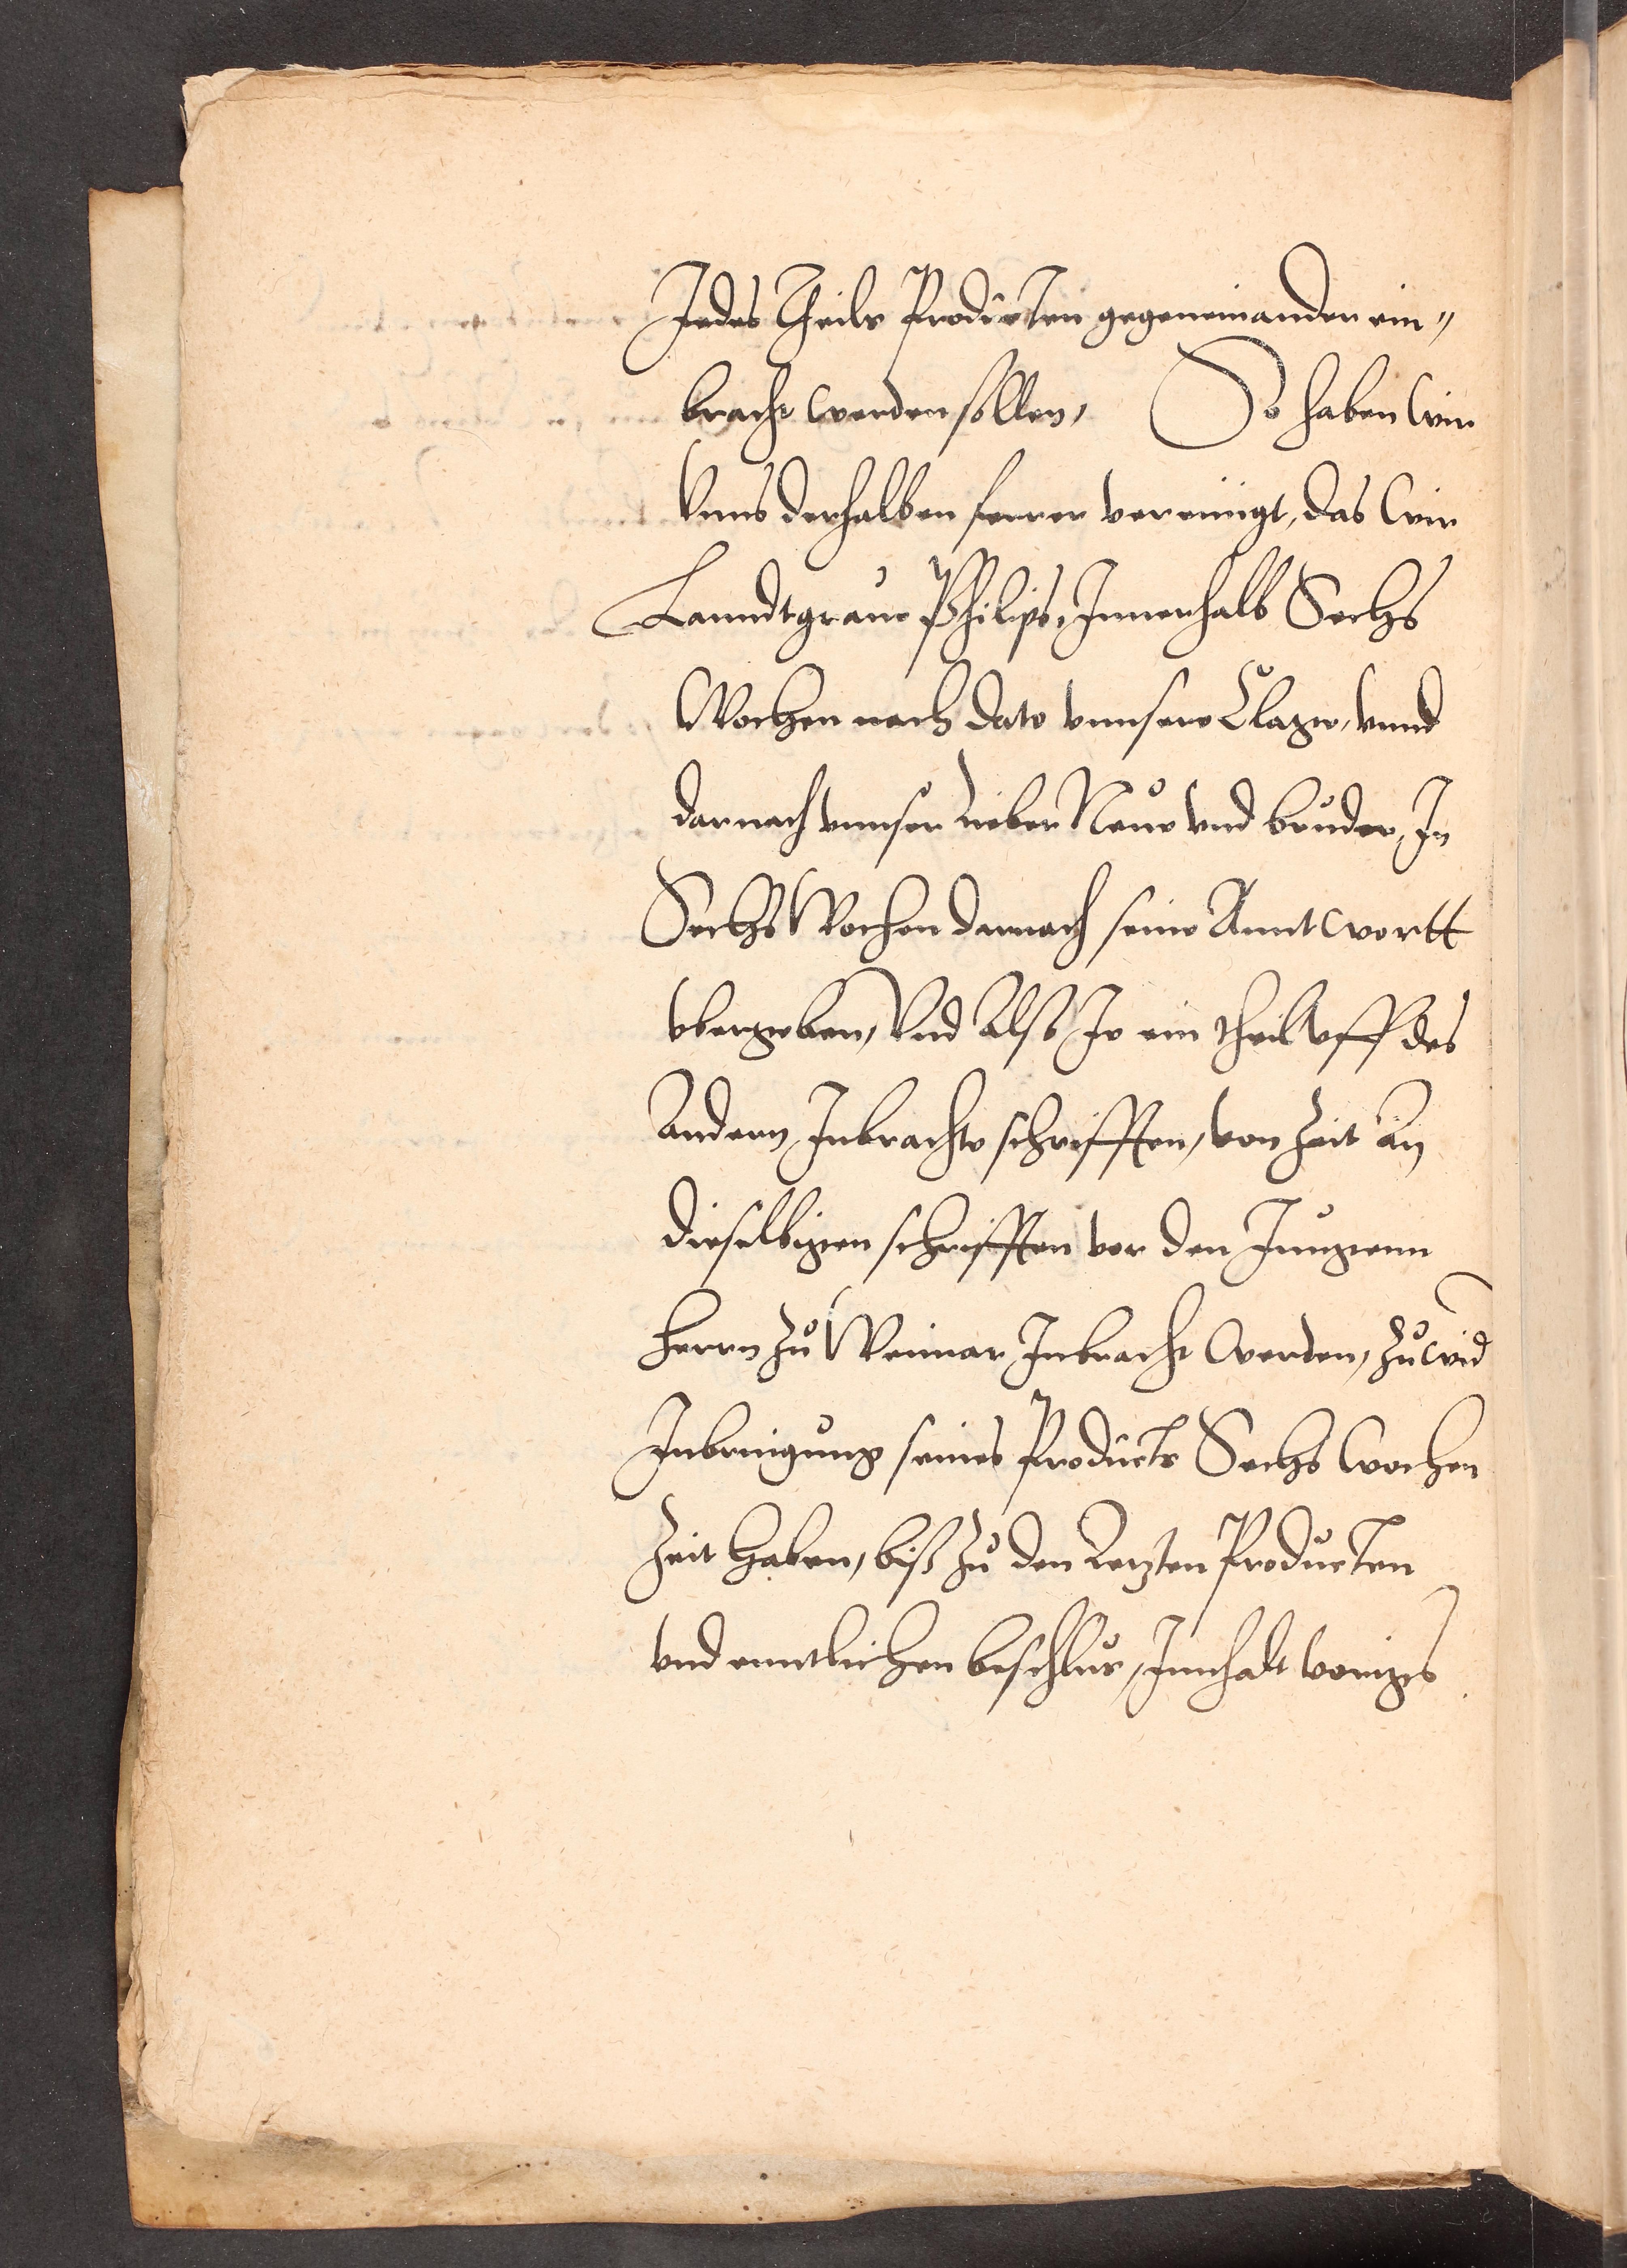 Jedes Theils Producten gegeneinander ein„
bracht werden sollen, So haben wir
Vnns derhalben ferrer vereinigt, das wir
Lanndtgraue Philips, Innerhalb Sechs
Wochen nach dato vnnsere Clage, vnnd
darnach vnnser lieber Neue vnd bruder, In
Sechs Wochen darnach seine Anntwortt
vbergeben, Vnd Also Je ein theil vff des
Andern Inbrachte schrifften, von Zeit an
dieselbigen schrifften vor den Jungenn
herrn zu Weimar Inbracht werden, zu wid
Inbringung seines Products Sechs wochen
Zeit haben, biß zu den Letzten Producten
vnd enntlichen beschlus, Innhalt voriges